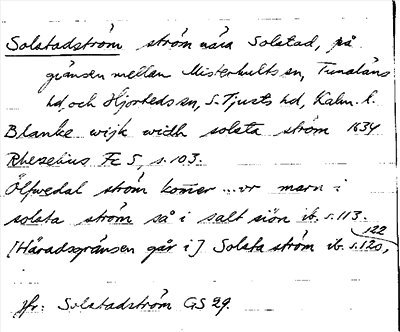 Solstadström ström nära Solstad, på
gränsen mellan Misterhults sn, Tunaläns
hd, och Hjorteds sn, S. Tjusts hd, Kalm. l.
Blanke wijk widh solsta ström 1634
Rhezelius Fc 5, s. 103.
Ölfwedal ström kom̄er ... vr marn i
solsta ström så i salt siön ib. s. 113.
[Häradsgränsen går i] Solsta ström ib. s. 120, 122
jfr: Solstadström GS 29.